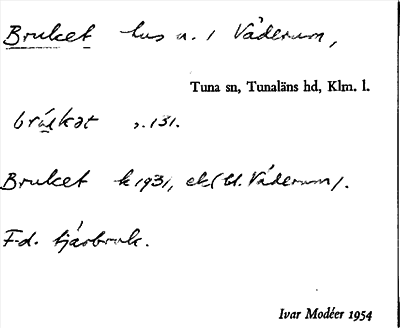 Bruket hus n. 1 Våderum,
Tuna sn, Tunaläns hd, Klm. l.
brukat s. 131.
Bruket k 1931, ek (bl. Våderum).
F.d. tjärbruk.
Ivar Modéer 1954